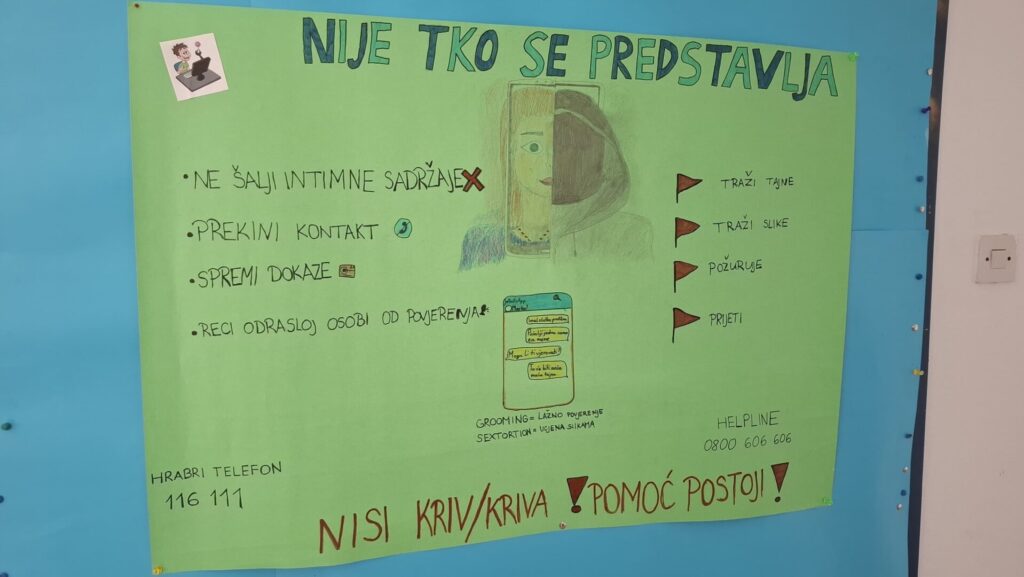 NIJE TKO SE PREDSTAVLJA
• NE ŠALJI INTIMNE SADRŽAJE
• PREKINI KONTAKT
• SPREMI DOKAZE
• RECI ODRASLOJ OSOBI OD POVJERENJA
TRAŽI TAJNE
TRAŽI SLIKE
POŽURUJE
PRIJETI
Mogu li ti vjerovati?
To će biti naša
mala tajna
GROOMING = LAŽNO POVJERENJE
SEXTORTION = UCJENA SLIKAMA
HELPLINE
0800 606 606
HRABRI TELEFON
116 111
NISI KRIV/KRIVA ! POMOĆ POSTOJI !